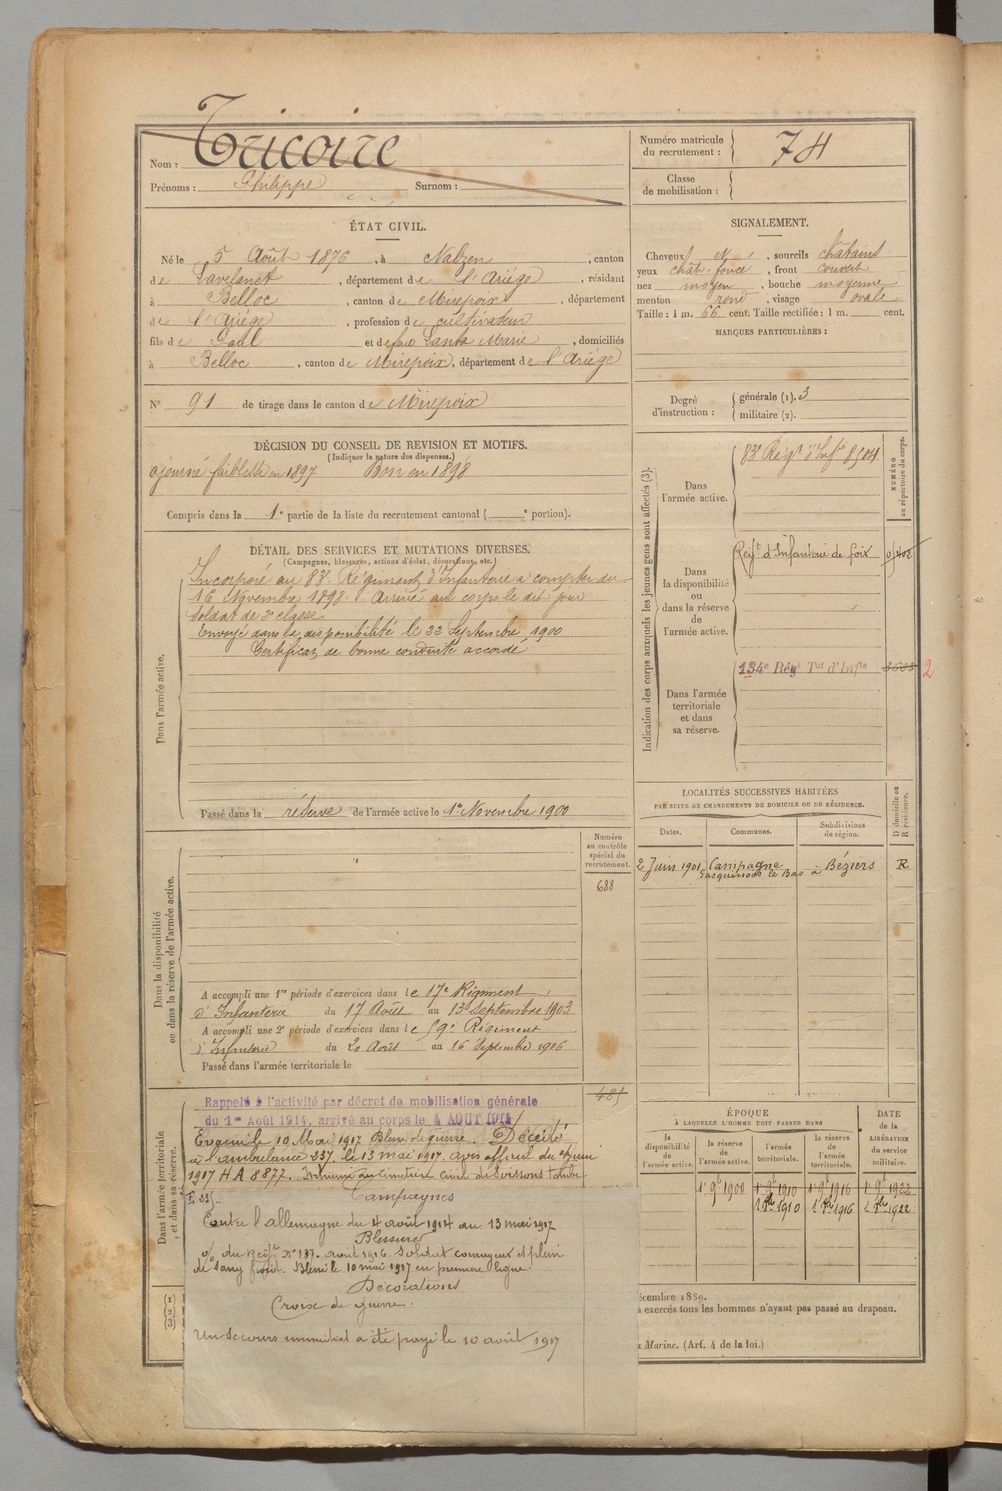 Nom : Tricoire
Prénoms : Philippe Surnom :
Numéro matricule du recrutement : 74
Classe de mobilisation :
ÉTAT CIVIL.
Né le 5 Août 1876, à Nalzen, canton
de Lavelanet, département de l'Ariège, résidant
à Belloc, canton de Mirepoix, département
de l'Ariège, profession de cultivateur
fils de Paul et de Lanta Marie, domiciliés
à Belloc, canton de Mirepoix, département de l'Ariège
N° 91 de tirage dans le canton de Mirepoix
DÉCISION DU CONSEIL DE REVISION ET MOTIFS.
(Indiquer la nature des dispenses.)
ajourné faiblesse en 1897 Bon en 1898
Compris dans la 1e partie de la liste du recrutement cantonal ( e portion).
SIGNALEMENT.
Cheveux N, sourcils châtains
yeux chât-foncé, front couvert
nez moyen, bouche moyenne
menton rond, visage ovale
Taille : 1 m. 66 cent. Taille rectifiée : 1 m. cent.
MARQUES PARTICULIÈRES :
Degré d'instruction : générale (1). 3
militaire (2).
DÉTAIL DES SERVICES ET MUTATIONS DIVERSES.
(Campagnes, blessures, actions d'éclat, décorations, etc.)
Dans l'armée active.
Incorporé au 83e Régiment d'Infanterie à compter du
16 Novembre 1898. Arrivé au corps le dit jour
Soldat de 2e classe
Envoyé dans la disponibilité le 22 Septembre 1900
Certificat de bonne conduite accordé
Passé dans la réserve de l'armée active le 1er Novembre 1900
Indication des corps auxquels les jeunes gens sont affectés (3).
NUMÉRO au répertoire du corps.
Dans l'armée active.
83e Régt d'Infie 8504
Dans la disponibilité ou dans la réserve de l'armée active.
Regt d'Infanterie de foix
Dans l'armée territoriale et dans sa réserve.
134e Régt Tal d'Infie
2
Numéro au contrôle spécial du recrutement.
688
Dans la disponibilité ou dans la réserve de l'armée active.
A accompli une 1re période d'exercices dans le 17e Régiment
d'Infanterie du 17 Août au 13 Septembre 1903
A accompli une 2e période d'exercices dans le 59e Régiment
d'Infanterie du 20 Août au 16 Septembre 1906
Passé dans l'armée territoriale le
485
LOCALITÉS SUCCESSIVES HABITÉES
PAR SUITE DE CHANGEMENTS DE DOMICILE OU DE RÉSIDENCE.
Dates. Communes. Subdivisions de région. D domicile ou R résidence.
2 Juin 1901 Campagne
Gasquinoy le Bas à Béziers R
Dans l'armée territoriale et dans sa réserve.
Rappelé à l'activité par décret de mobilisation générale
du 1er Août 1914, arrivé au corps le 4 AOUT 1914
Evacué le 10 Mai 1917 Blessé de guerre. Décédé
à l'ambulance 237 le 13 mai 1917. avis officiel du Juin
1917 HA 8877. Inhumé au cimetière civil de Soissons tombe
E 235.
Campagnes
Contre l'allemagne du 4 août 1914 au 13 mai 1917
Blessure
o/ du Regt N° 137. avril 1916. Soldat courageux et plein
de sang froid. Blessé le 10 mai 1917 en première ligne.
Décorations
Croix de guerre.
Un Secours immédiat a été payé le 10 août 1917
ÉPOQUE
À LAQUELLE L'HOMME DOIT PASSER DANS
la disponibilité de l'armée active. la réserve de l'armée active. l'armée territoriale. la réserve de l'armée territoriale.
DATE de la LIBÉRATION du service militaire.
1er 9b 1900 1er 9b 1910 1er 9b 1916 1er 9b 1922
1 8bre 1910 1 8bre 1916 1 8bre 1922
(1)
(2)
(3)
écembre 1889.
à exercés tous les hommes n'ayant pas passé au drapeau.
a Marine. (Art. 4 de la loi.)